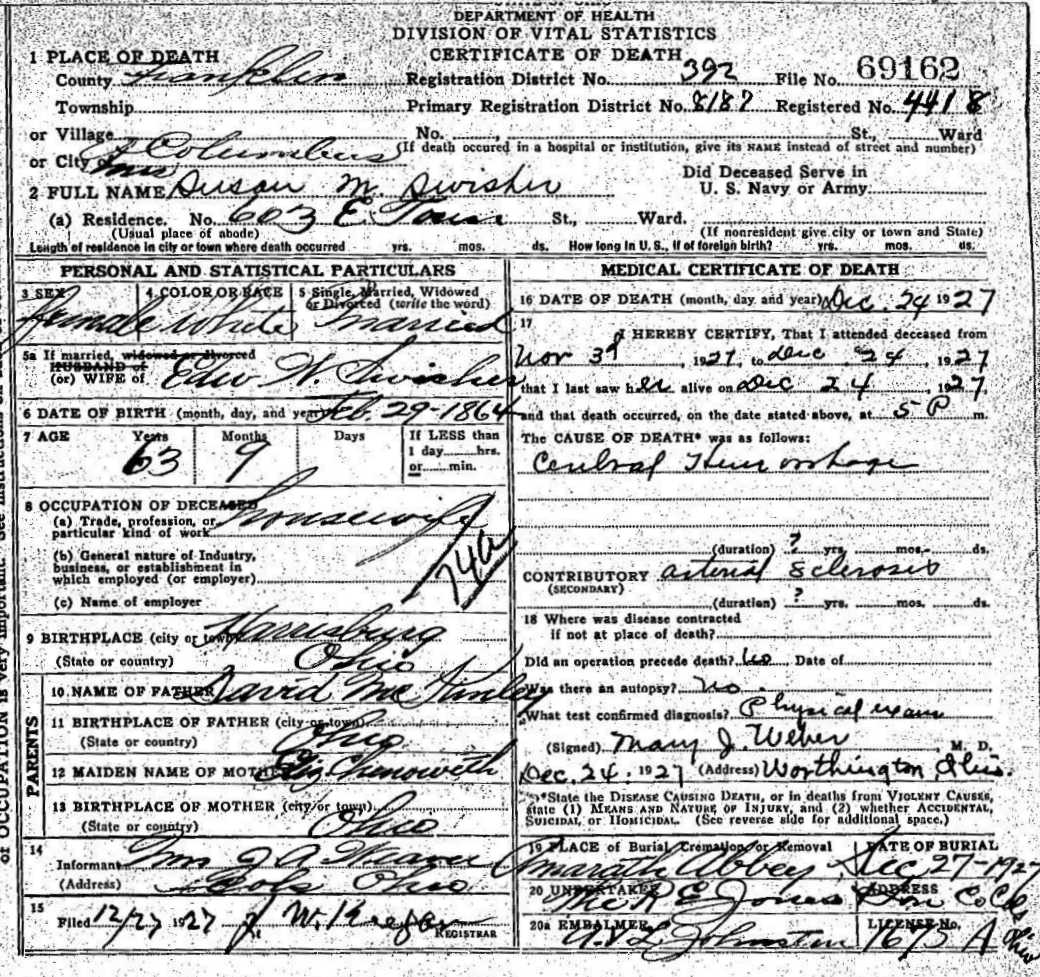 DEPARTMENT OF HEALTH
DIVISION OF VITAL STATISTICS
CERTIFICATE OF DEATH
1 PLACE OF DEATH
County Franklin Registration District No. 392 File No. 69162
Township Primary Registration District No. 8187 Registered No. 4418
or Village No. , St., Ward
(If death occured in a hospital or institution, give its NAME instead of street and number)
or City of Columbus
Mrs
2 FULL NAME Susan M. Swisher Did Deceased Serve in U. S. Navy or Army
(a) Residence. No. 603 E. Town St., Ward.
(Usual place of abode) (If nonresident give city or town and State)
Length of residence in city or town where death occurred yrs. mos. ds. How long in U. S., if of foreign birth? yrs. mos. ds.
PERSONAL AND STATISTICAL PARTICULARS
3 SEX 4 COLOR OR RACE 5 Single, Married, Widowed
or Divorced (write the word)
female White married
5a If married, widowed or divorced
HUSBAND of
(or) WIFE of Edw W. Swisher
6 DATE OF BIRTH (month, day, and year) Feb. 29-1864
7 AGE Years Months Days If LESS than
1 day hrs.
or min.
63 9
8 OCCUPATION OF DECEASED
(a) Trade, profession, or
particular kind of work housewife
74a
(b) General nature of Industry,
business, or establishment in
which employed (or employer)
(c) Name of employer
9 BIRTHPLACE (city or town) Harrisburg
(State or country) Ohio
PARENTS
10 NAME OF FATHER David McKinley
11 BIRTHPLACE OF FATHER (city or town)
(State or country) Ohio
12 MAIDEN NAME OF MOTHER Eliz Chenoweth
13 BIRTHPLACE OF MOTHER (city or town)
(State or country) Ohio
14
Informant Mrs J A Weaver
(Address) Cols Ohio
15
Filed 12/27 1927 REGISTRAR
MEDICAL CERTIFICATE OF DEATH
16 DATE OF DEATH (month, day and year) Dec. 24 1927
17
I HEREBY CERTIFY, That I attended deceased from
Nov 3d, 1927, to Dec. 24, 1927
that I last saw her alive on Dec 24, 1927,
and that death occurred, on the date stated above, at 5 P m.
The CAUSE OF DEATH* was as follows:
Cerebral Hemorrhage
(duration) ? yrs. mos. ds.
CONTRIBUTORY arterial Sclerosis
(SECONDARY)
(duration) ? yrs. mos. ds.
18 Where was disease contracted
if not at place of death?
Did an operation precede death? No Date of
Was there an autopsy? No.
What test confirmed diagnosis? Physical exam
(Signed) Mary J. Weber, M. D.
Dec. 24, 1927 (Address) Worthington Ohio.
*State the DISEASE CAUSING DEATH, or in deaths from VIOLENT CAUSES,
state (1) MEANS AND NATURE OF INJURY, and (2) whether ACCIDENTAL,
SUICIDAL, or HOMICIDAL. (See reverse side for additional space.)
19 PLACE of Burial Cremation or Removal DATE OF BURIAL
Abbey Dec 27-1927
20 UNDERTAKER ADDRESS
The R E Jones Son Co Cols
20a EMBALMER LICENSE No.
A. L. Johnston 1675 A Ohio